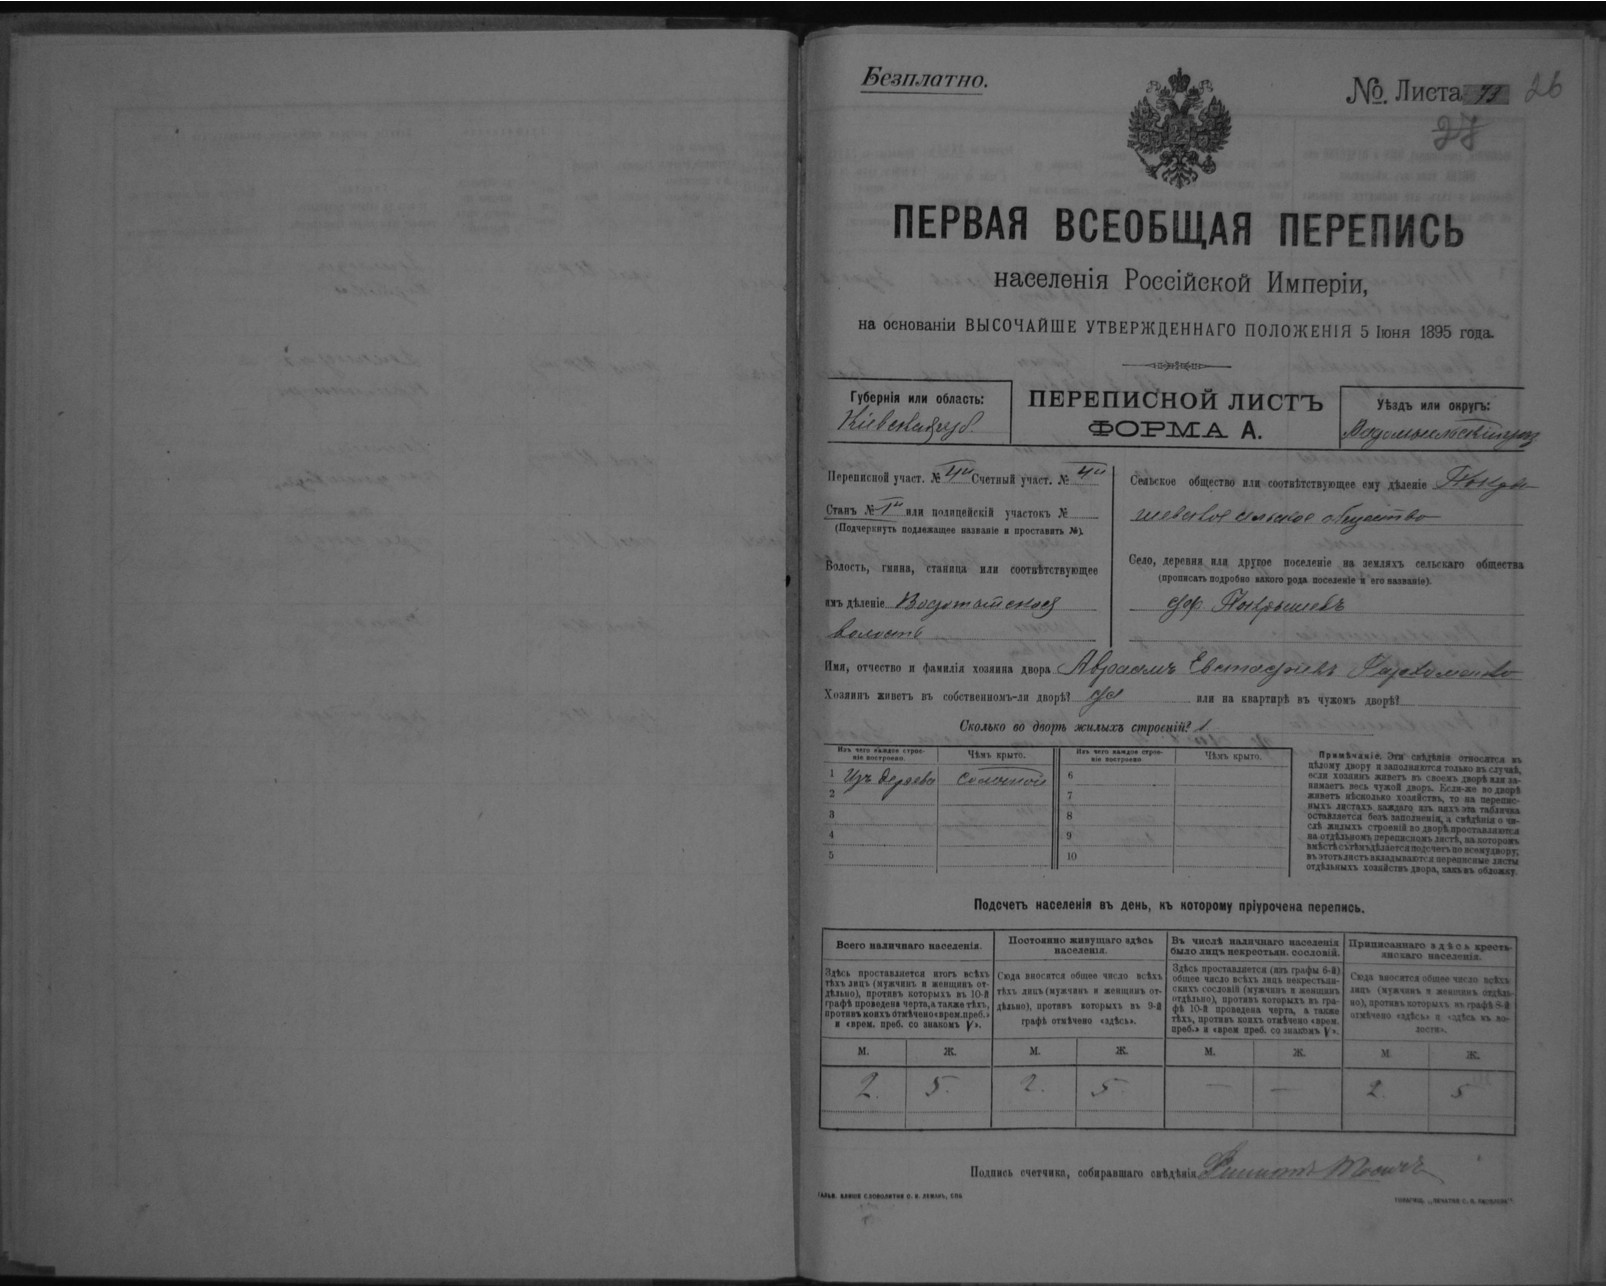 Безплатно.
№. Листа 26
27
ПЕРВАЯ ВСЕОБЩАЯ ПЕРЕПИСЬ
населенія Россійской Имперіи,
на основаніи ВЫСОЧАЙШЕ УТВЕРЖДЕННАГО ПОЛОЖЕНІЯ 5 Іюня 1895 года.
Губернія или область:
Кіевская губ.
ПЕРЕПИСНОЙ ЛИСТЪ
ФОРМА А.
Уѣздъ или округъ:
Переписной участ. № 4й Счетный участ. № 4й
Станъ № 1й или полицейскій участокъ №
(Подчеркнуть подлежащее названіе и проставить №).
Волость, гмина, станица или соотвѣтствующее
имъ дѣленіе
волость
Сельское общество или соотвѣтствующее ему дѣленіе Покры-
шевское сельское общество
Село, деревня или другое поселеніе на земляхъ сельскаго общества
(прописать подробно какого рода поселеніе и его названіе).
Покрышевъ
Имя, отчество и фамилія хозяина двора Аврамъ Евстафіевъ Пархоменко
Хозяинъ живетъ въ собственномъ-ли дворѣ? да или на квартирѣ въ чужомъ дворѣ?
Сколько во дворѣ жилыхъ строеній? 1
Изъ чего каждое строе-
ніе построено.
Чѣмъ крыто.
Изъ чего каждое строе-
ніе построено.
Чѣмъ крыто.
1 Изъ дерева соломой
2
3
4
5
6
7
8
9
10
Примѣчаніе. Эти свѣдѣнія относятся къ
цѣлому двору и заполняются только въ случаѣ,
если хозяинъ живетъ въ своемъ дворѣ или за-
нимаетъ весь чужой дворъ. Если-же во дворѣ
живетъ нѣсколько хозяйствъ, то на перепис-
ныхъ листахъ каждаго изъ нихъ эта табличка
оставляется безъ заполненія, а свѣдѣнія о чи-
слѣ жилыхъ строеній во дворѣ проставляются
на отдѣльномъ переписномъ листѣ, на которомъ
вмѣстѣ съ тѣмъ дѣлается подсчетъ по всему двору;
въ этотъ листъ вкладываются переписные листы
отдѣльныхъ хозяйствъ двора, какъ въ обложку.
Подсчетъ населенія въ день, къ которому пріурочена перепись.
Всего наличнаго населенія.
Здѣсь проставляется итогъ всѣхъ
тѣхъ лицъ (мужчинъ и женщинъ от-
дѣльно), противъ которыхъ въ 10-й
графѣ проведена черта, а также тѣхъ,
противъ коихъ отмѣчено «врем. преб.»
и «врем. преб. со знакомъ V».
Постоянно живущаго здѣсь
населенія.
Сюда вносится общее число всѣхъ
тѣхъ лицъ (мужчинъ и женщинъ от-
дѣльно), противъ которыхъ въ 9-й
графѣ отмѣчено «здѣсь».
Въ числѣ наличнаго населенія
было лицъ некрестьян. сословій.
Здѣсь проставляется (изъ графы 6-й)
общее число всѣхъ лицъ некрестьян-
скихъ сословій (мужчинъ и женщинъ
отдѣльно), противъ которыхъ въ гра-
фѣ 10-й проведена черта, а также
тѣхъ, противъ коихъ отмѣчено «врем.
преб.» и «врем. преб. со знакомъ V».
Приписаннаго здѣсь кресть-
янскаго населенія.
Сюда вносится общее число всѣхъ
лицъ (мужчинъ и женщинъ отдѣль-
но), противъ которыхъ въ графѣ 8-й
отмѣчено «здѣсь» и «здѣсь въ во-
лости».
М. Ж. М. Ж. М. Ж. М. Ж.
2. 5. 2. 5. — — 2. 5
Подпись счетчика, собиравшаго свѣдѣнія